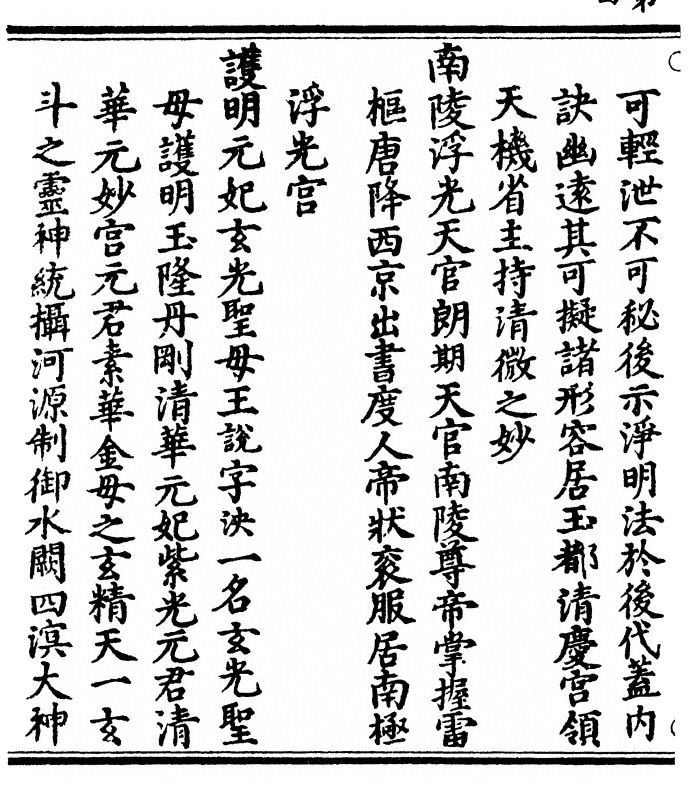 可輕泄不可秘後示淨明法於後代蓋内
訣幽遠其可擬諸形容居玉都清慶宫領
天機省主持清微之妙
南陵浮光天官朗期天官南陵尊帝掌握雷
樞唐降西京出書度人帝狀衮服居南極
浮光宫
護明元妃玄光聖母王說字泱一名玄光聖
母護明玉隆丹剛清華元妃紫光元君清
華元妙宫元君素華金母之玄精天一玄
斗之靈神統攝河源制御水闕四溟大神